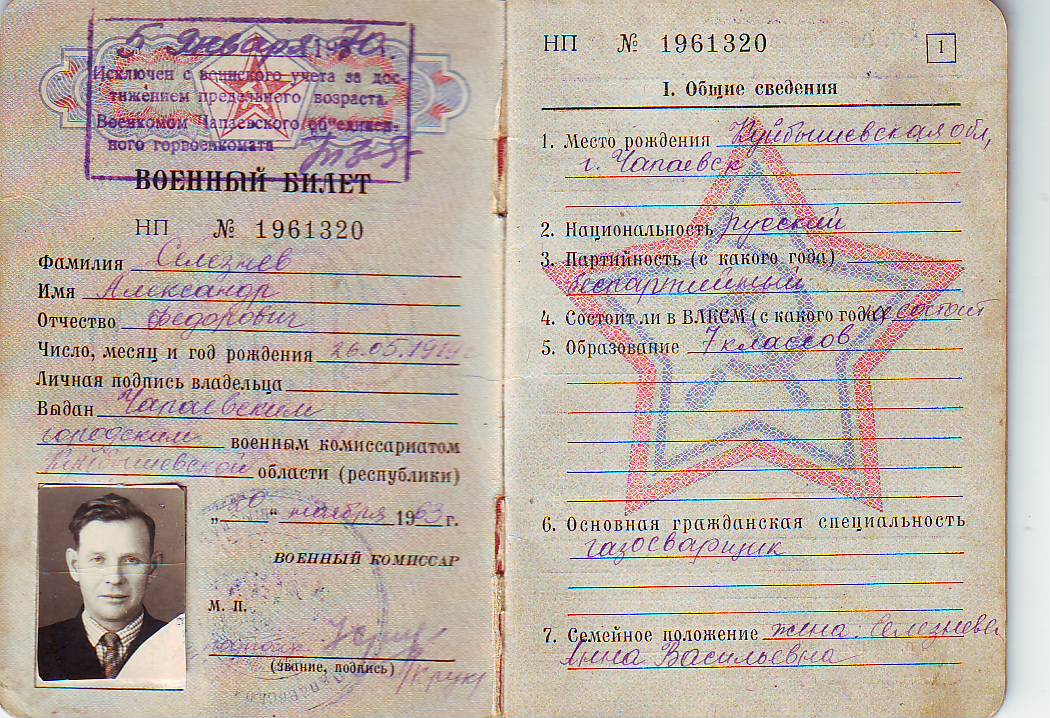 5 января 1970 г.
Исключен с воинского учета за дос-
тижением предельного возраста.
Военкомом Чапаевского об"единен-
ного горвоенкомата
ВОЕННЫЙ БИЛЕТ
НП № 1961320
Фамилия Селезнев
Имя Александр
Отчество Федорович
Число, месяц и год рождения 26.05.1919г
Личная подпись владельца
Выдан Чапаевским
городским военным комиссариатом
Куйбышевской области (республики)
„20“ ноября 1963 г.
ВОЕННЫЙ КОМИССАР
М. П.
(звание, подпись)
НП № 1961320
1
I. Общие сведения
1. Место рождения Куйбышевская обл,
г. Чапаевск
2. Национальность русский
3. Партийность (с какого года)
беспартийный
4. Состоит ли в ВЛКСМ (с какого года) не состоит
5. Образование 7 классов
6. Основная гражданская специальность
газосварщик
7. Семейное положение жена: Селезнева
Анна Васильевна